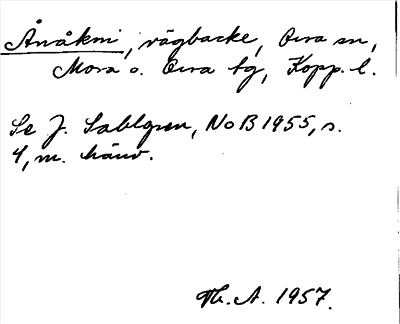 Ånåkni, vägbacke, Orsa sn,
Mora o. Orsa tg, Kopp. l.
Se J. Sahlgren, NoB 1955, s.
4, m. hänv.
Th. A. 1957.